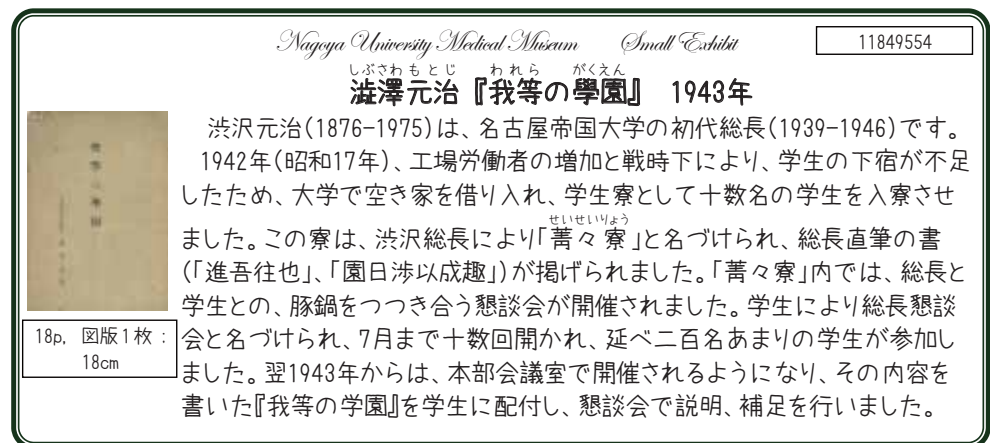 Nagoya University Medical Museum Small Exhibit
11849554
しぶさわもとじ われら がくえん
澁澤元治『我等の學園』 1943年
渋沢元治(1876-1975)は、名古屋帝国大学の初代総長(1939-1946)です。
1942年(昭和17年)、工場労働者の増加と戦時下により、学生の下宿が不足
したため、大学で空き家を借り入れ、学生寮として十数名の学生を入寮させ
せいせいりょう
ました。この寮は、渋沢総長により「菁々寮」と名づけられ、総長直筆の書
(「進吾往也」、「園日渉以成趣」)が掲げられました。「菁々寮」内では、総長と
学生との、豚鍋をつつき合う懇談会が開催されました。学生により総長懇談
会と名づけられ、7月まで十数回開かれ、延べ二百名あまりの学生が参加し
ました。翌1943年からは、本部会議室で開催されるようになり、その内容を
書いた『我等の学園』を学生に配付し、懇談会で説明、補足を行いました。
18p, 図版1枚 :
18cm